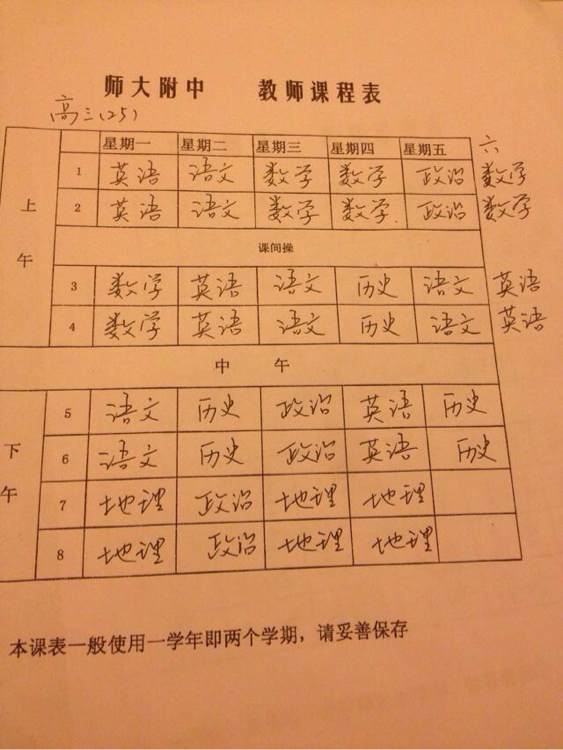 师大附中 教师课程表
高三(25)
星期一 星期二 星期三 星期四 星期五 六
上午
1 英语 语文 数学 数学 政治 数学
2 英语 语文 数学 数学 政治 数学
课间操
3 数学 英语 语文 历史 语文 英语
4 数学 英语 语文 历史 语文 英语
中 午
下午
5 语文 历史 政治 英语 历史
6 语文 历史 政治 英语 历史
7 地理 政治 地理 地理
8 地理 政治 地理 地理
本课表一般使用一学年即两个学期，请妥善保存